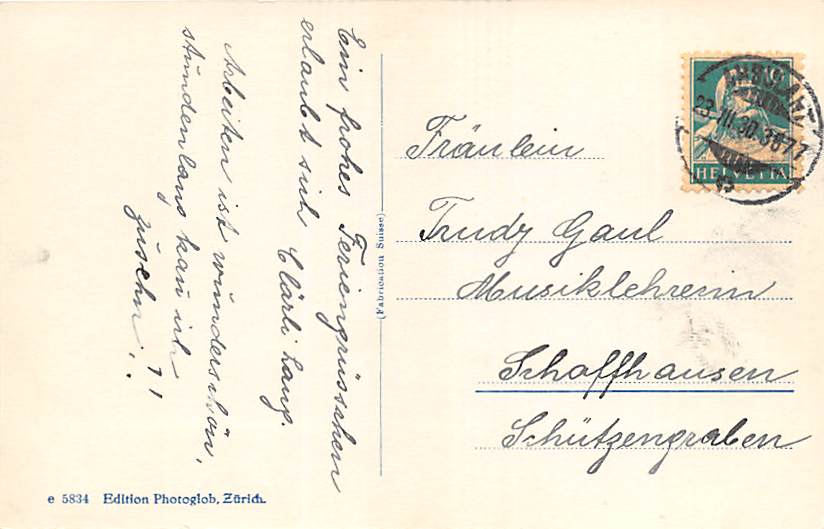 Ein frohes Feriengrüsschen
erlaubt sich Clärli Lang.
Arbeiten ist wunderschön,
stundenlang kan ich
zusehn!
Fräulein
Trudy Gaul
Musiklehrerin
Schaffhausen
Schützengraben
(Fabrication Suisse)
e 5834 Edition Photoglob, Zürich.
AMBULANT
23.III.30.3677
10
HELVETIA